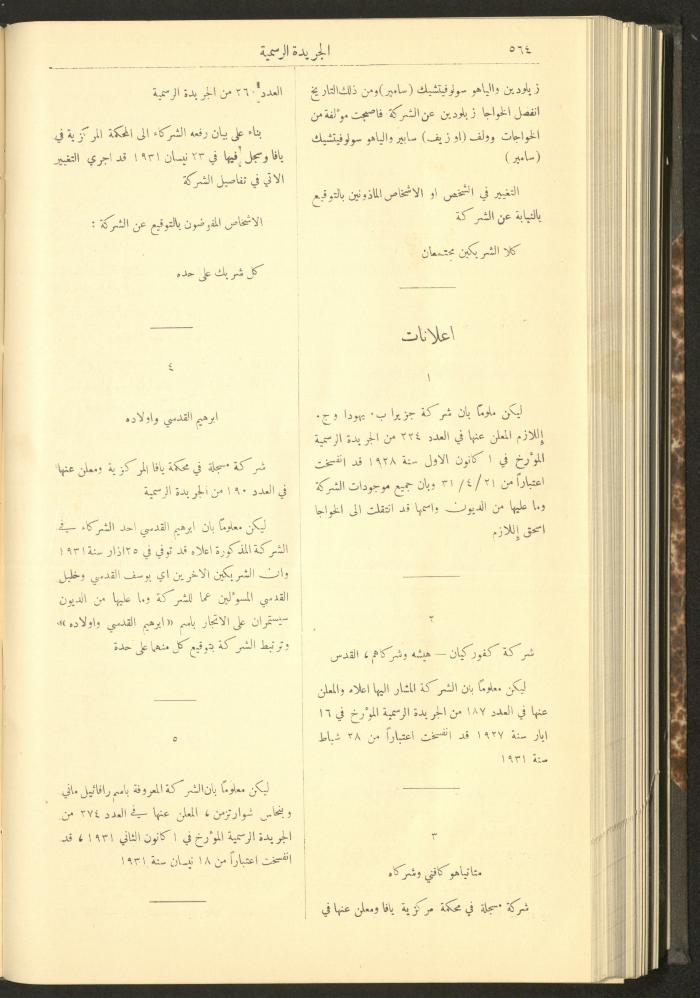 ٥٦٤
الجريدة الرسمية
زيلودين والياهو سولوفيتشيك (سامير) ومن ذلك التاريخ
انفصل الخواجا زيلودين عن الشركة فاصبحت مؤلفة من
الخواجات وولف (اوزيف) سابير والياهو سولوفيتشيك
(سامير)
التغيير في الشخص او الاشخاص الماذونين بالتوقيع
بالنيابة عن الشركة
كلا الشريكين مجتمعان
اعلانات
١
ليكن ملوماً بان شركة جزيرا ب. يهودا و ج.
إللازم المعلن عنها في العدد ٢٢٤ من الجريدة الرسمية
المؤرخ في ١ كانون الاول سنة ١٩٢٨ قد انفسخت
اعتباراً من ٢١/٤/٣١ وبان جميع موجودات الشركة
وما عليها من الديون واسمها قد انتقلت الى الخواجا
اسحق إللازم
٢
شركة كفوركيان — هيشه وشركاهم، القدس
ليكن معلوماً بان الشركة المشار اليها اعلاه والمعلن
عنها في العدد ١٨٧ من الجريدة الرسمية المؤرخ في ١٦
ايار سنة ١٩٢٧ قد انفسخت اعتباراً من ٢٨ شباط
سنة ١٩٣١
٣
متاتياهو كافني وشركاه
شركة مسجلة في محكمة مركزية يافا ومعلن عنها في
العدد ٢٦٠ من الجريدة الرسمية
بناء على بيان رفعه الشركاء الى المحكمة المركزية في
يافا وسجل فيها في ٢٣ نيسان ١٩٣١ قد اجري التغيير
الاتي في تفاصيل الشركة
الاشخاص المفوضون بالتوقيع عن الشركة :
كل شريك على حده
٤
ابرهيم القدسي واولاده
شركة مسجلة في محكمة يافا المركزية ومعلن عنها
في العدد ١٩٠ من الجريدة الرسمية
ليكن معلوماً بان ابرهيم القدسي احد الشركاء في
الشركة المذكورة اعلاه قد توفي في ٢٥ اذار سنة ١٩٣١
وان الشريكين الاخرين اي يوسف القدسي وخليل
القدسي المسؤلين عما للشركة وما عليها من الديون
سيستمران على الاتجار باسم «ابرهيم القدسي واولاده»
وترتبط الشركة بتوقيع كل منهما على حدة
٥
ليكن معلوماً بان الشركة المعروفة باسم رافائيل ماني
وبنحاس شوارتزمن، المعلن عنها في العدد ٢٧٤ من
الجريدة الرسمية المؤرخ في ١ كانون الثاني ١٩٣١، قد
انفسخت اعتباراً من ١٨ نيسان سنة ١٩٣١